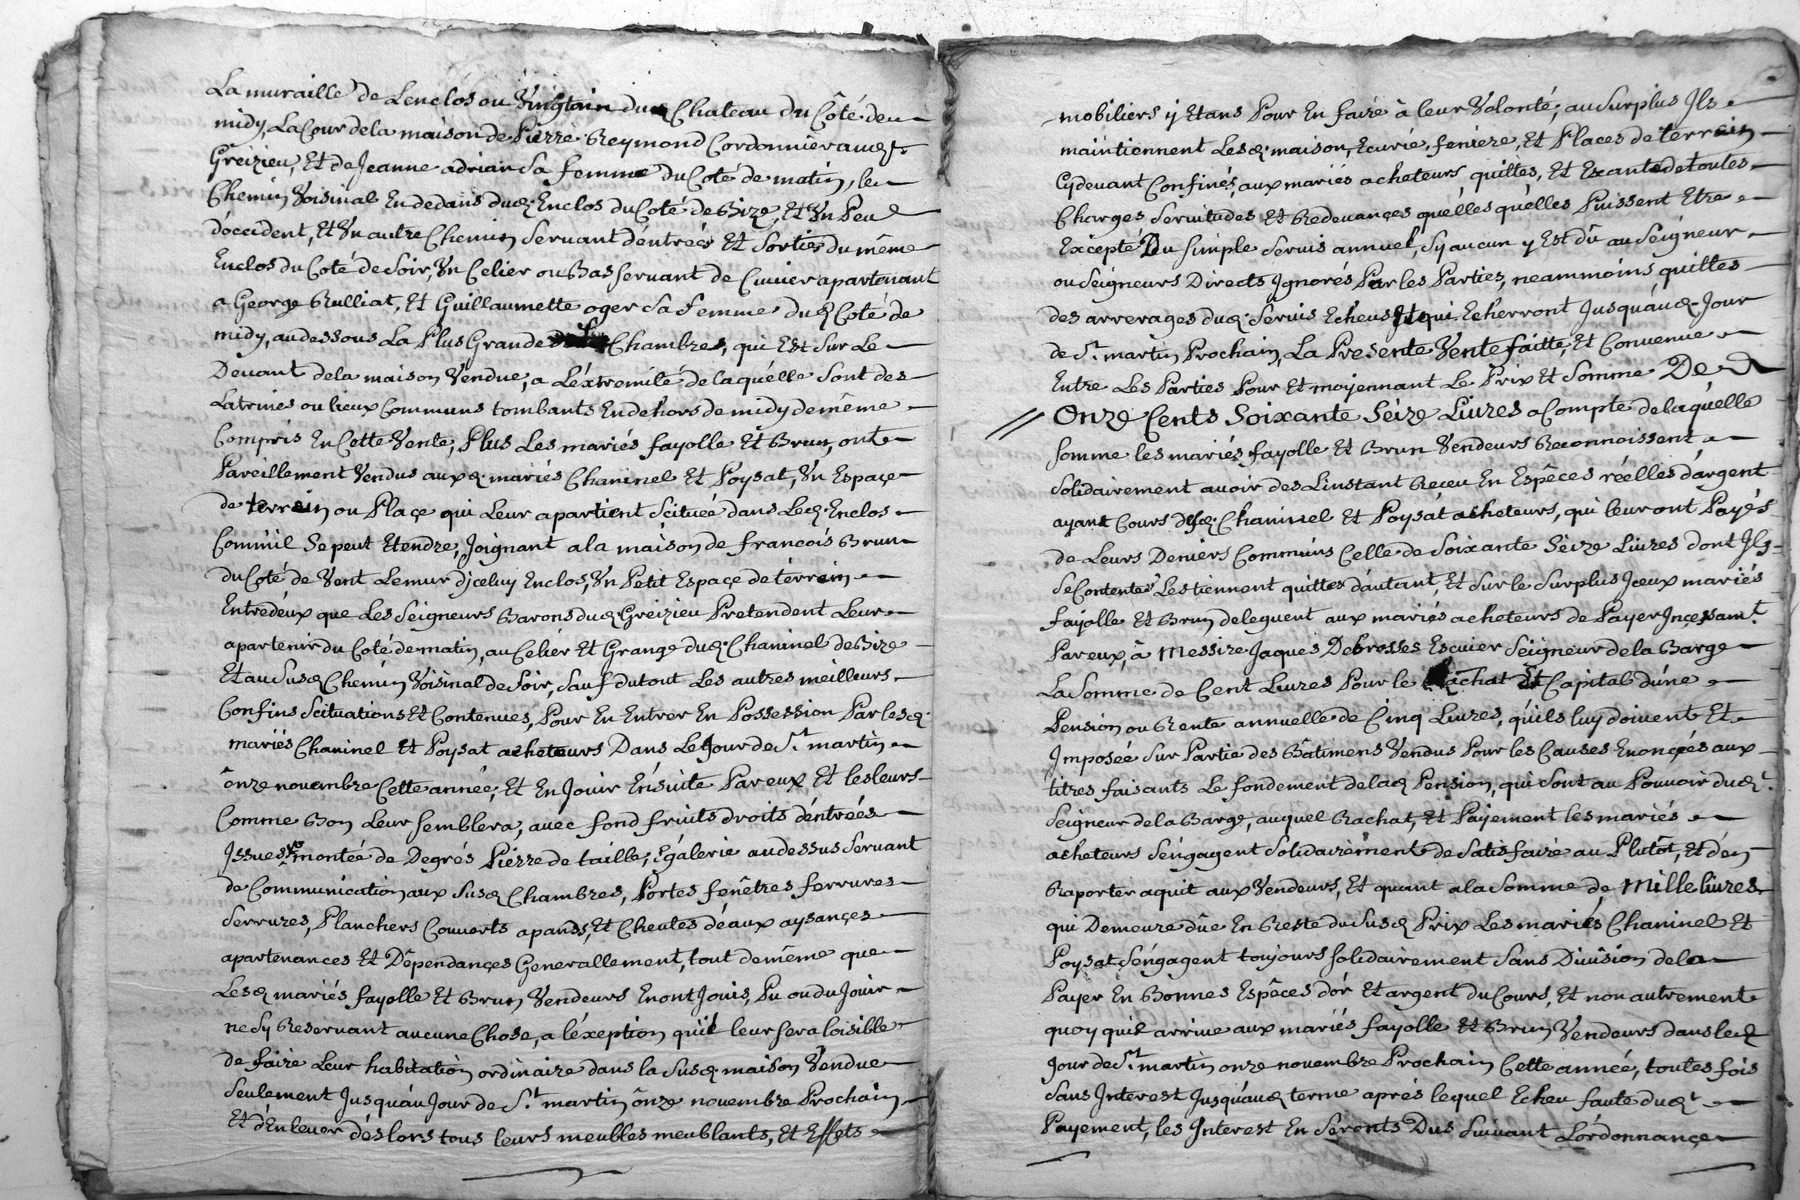 La muraille de Lenclos ou Vingtain du Chateau du Côté deu
midy, La Cour de la maison de Pierre Reymond Cordonnier aud.t
Greizieu, Et de Jeanne adrian Sa femme du Coté de matin, le
Chemin Voisinal En dedans dud. Enclos du Coté de Bize, Et Un Peu
d'occident, Et Un autre Chemin Servant d'entrées Et Sorties du même
Enclos du Coté de Soir, Un Celier ou Bas servant de Cuvier apartenant
a George Rulliat, Et Guillaumette oger Sa femme dud Coté de
midy, audessous La Plus Grande Chambres, qui Est Sur Le
Devant de la maison Vendue, a L'éxtremité de laquélle Sont des
Latrines ou lieux Communs tombants En dehors de midy de même
Compris En Cette Vente, Plus Les mariés fayolle Et Brun, ont
Pareillement Vendus aux d. mariés Chaninel Et Poysat, Un Espaçe
de terrein ou Plaçe qui Leur apartient Scituée dans Led. Enclos
Comm'il Se peut Etendre, Joignant a la maison de francois Brun
du Coté de Vent Le mur d'jceluy Enclos, Un Petit Espaçe de térrein
Entredéux que Les Seigneurs Barons dud. Greizieu Pretendent Leur
apartenir du Coté de matin, au Celiér Et Grange dud. Chaninel de Bize
Et au Susd Chemin Voisinal de Soir, Sauf du tout Les autres meilleurs
Confins Scituations Et Contenues, Pour En Entrer En Possession Par lesd.
mariés Chaninel Et Poysat acheteurs Dans Le Jour de S.t martin
ônze novembre Cette année, Et En Jouir Ensuite Par eux Et les leurs
Comme Bon Leur Semblera, avec fond fruits droits d'éntrées
Jssues, montée de Degrés Piérre de taille, Egálerie au dessus Servant
de Communication aux Susd Chambres, Portes fenêtres ferrures
Serrures, Planchers Couverts apands, Et Cheutes d'éaux aysançes
apartenances Et Dépendançes Generallement, tout de même que
Lesd mariés fayolle Et Brun Vendeurs En ont Jouis, Pu ou du Jouir
ne Sy Reservant aucune Chose, a l'éxeption qu'il leur Sera loisible
de faire Leur habitation ordinaire dans la Susd. maison Vendue
Seulement Jusqu'áu Jour de S.t martin ônze novembre Prochain
Et d'Enlever dés lors tous leurs meubles meublants, Et Effets
mobiliers y Etans Pour En faire à leur Volonté; au Surplus Jls
maintiennent Lesd. maison, Ecurie, feniere, Et Places de terrein
Cydevant Confinés, aux mariés acheteurs quittes, Et Exants de toutes
Charges Servitudes Et Redevançes quélles quélles Puissent Etre
Excepté Du Simple Servis annuel, Sy aucun y Est dû au Seigneur
ou Seigneurs Directs Jgnorés Par les Parties, neammoins quittes
des arrerages dud. Servis Echeus Et qui Echerront Jusquáud. Jour
de S.t martin Prochain, La Presente Vente faitte, Et Convenue
Entre Les Parties Pour Et moyennant Le Prix Et Somme De
// Onze Cents Soixante Seize Livres a Compte de laquélle
Somme les mariés fayolle Et Brun Vendeurs Reconnoissent
Solidairement avoir des L'instant Receu En Espêces réélles d'argent
ayant Cours desd. Chaninel Et Poysat acheteurs, qui leur ont Payés
de Leurs Deniers Communs Celle de Soixante Séize Livres dont Jls
Se Contentes Les tiennent quittes d'autant, Et Sur le Surplus Jceux mariés
fayolle Et Brun deleguent aux mariés acheteurs de Payer Jnçessam.t
Par eux, à Messire Jaques Debrosses Escuier Seigneur de la Barge
La Somme de Cent Livres Pour le Rachat Et Capital d'úne
Pension ou Rente annuelle de Cinq Livres, qu'ils luy doivent Et
Jmposée Sur Partie des Bâtimens Vendus Pour les Causes Enonçées aux
titres faisants Le fondement de lad Pension, qui Sont au Pouvoir dud.t
Seigneur de la Barge, auquel Rachat, Et Payement les mariés
acheteurs S'éngagent Solidairément de Satisfaire au Plutôt, Et d'en
Raporter aquit aux Vendeurs, Et quant a la Somme de Mille livres
qui Demeure dûe En Reste du Susd Prix Les mariés Chaninel Et
Poysat S'éngagent toujours Solidairement Sans Division de la
Payer En Bonnes Espêces d'ór Et argent du Cours, Et non autrement
quoy quil arrive aux mariés fayolle Et Brun Vendeurs dans led
Jour de S.t martin onze novembre Prochain Cette année, toutes fois
Sans Interest Jusqu'áud terme aprés lequel Echeu faute dud.t
Payement, les Interest En Seronts Dus Suivant L'órdonnançe